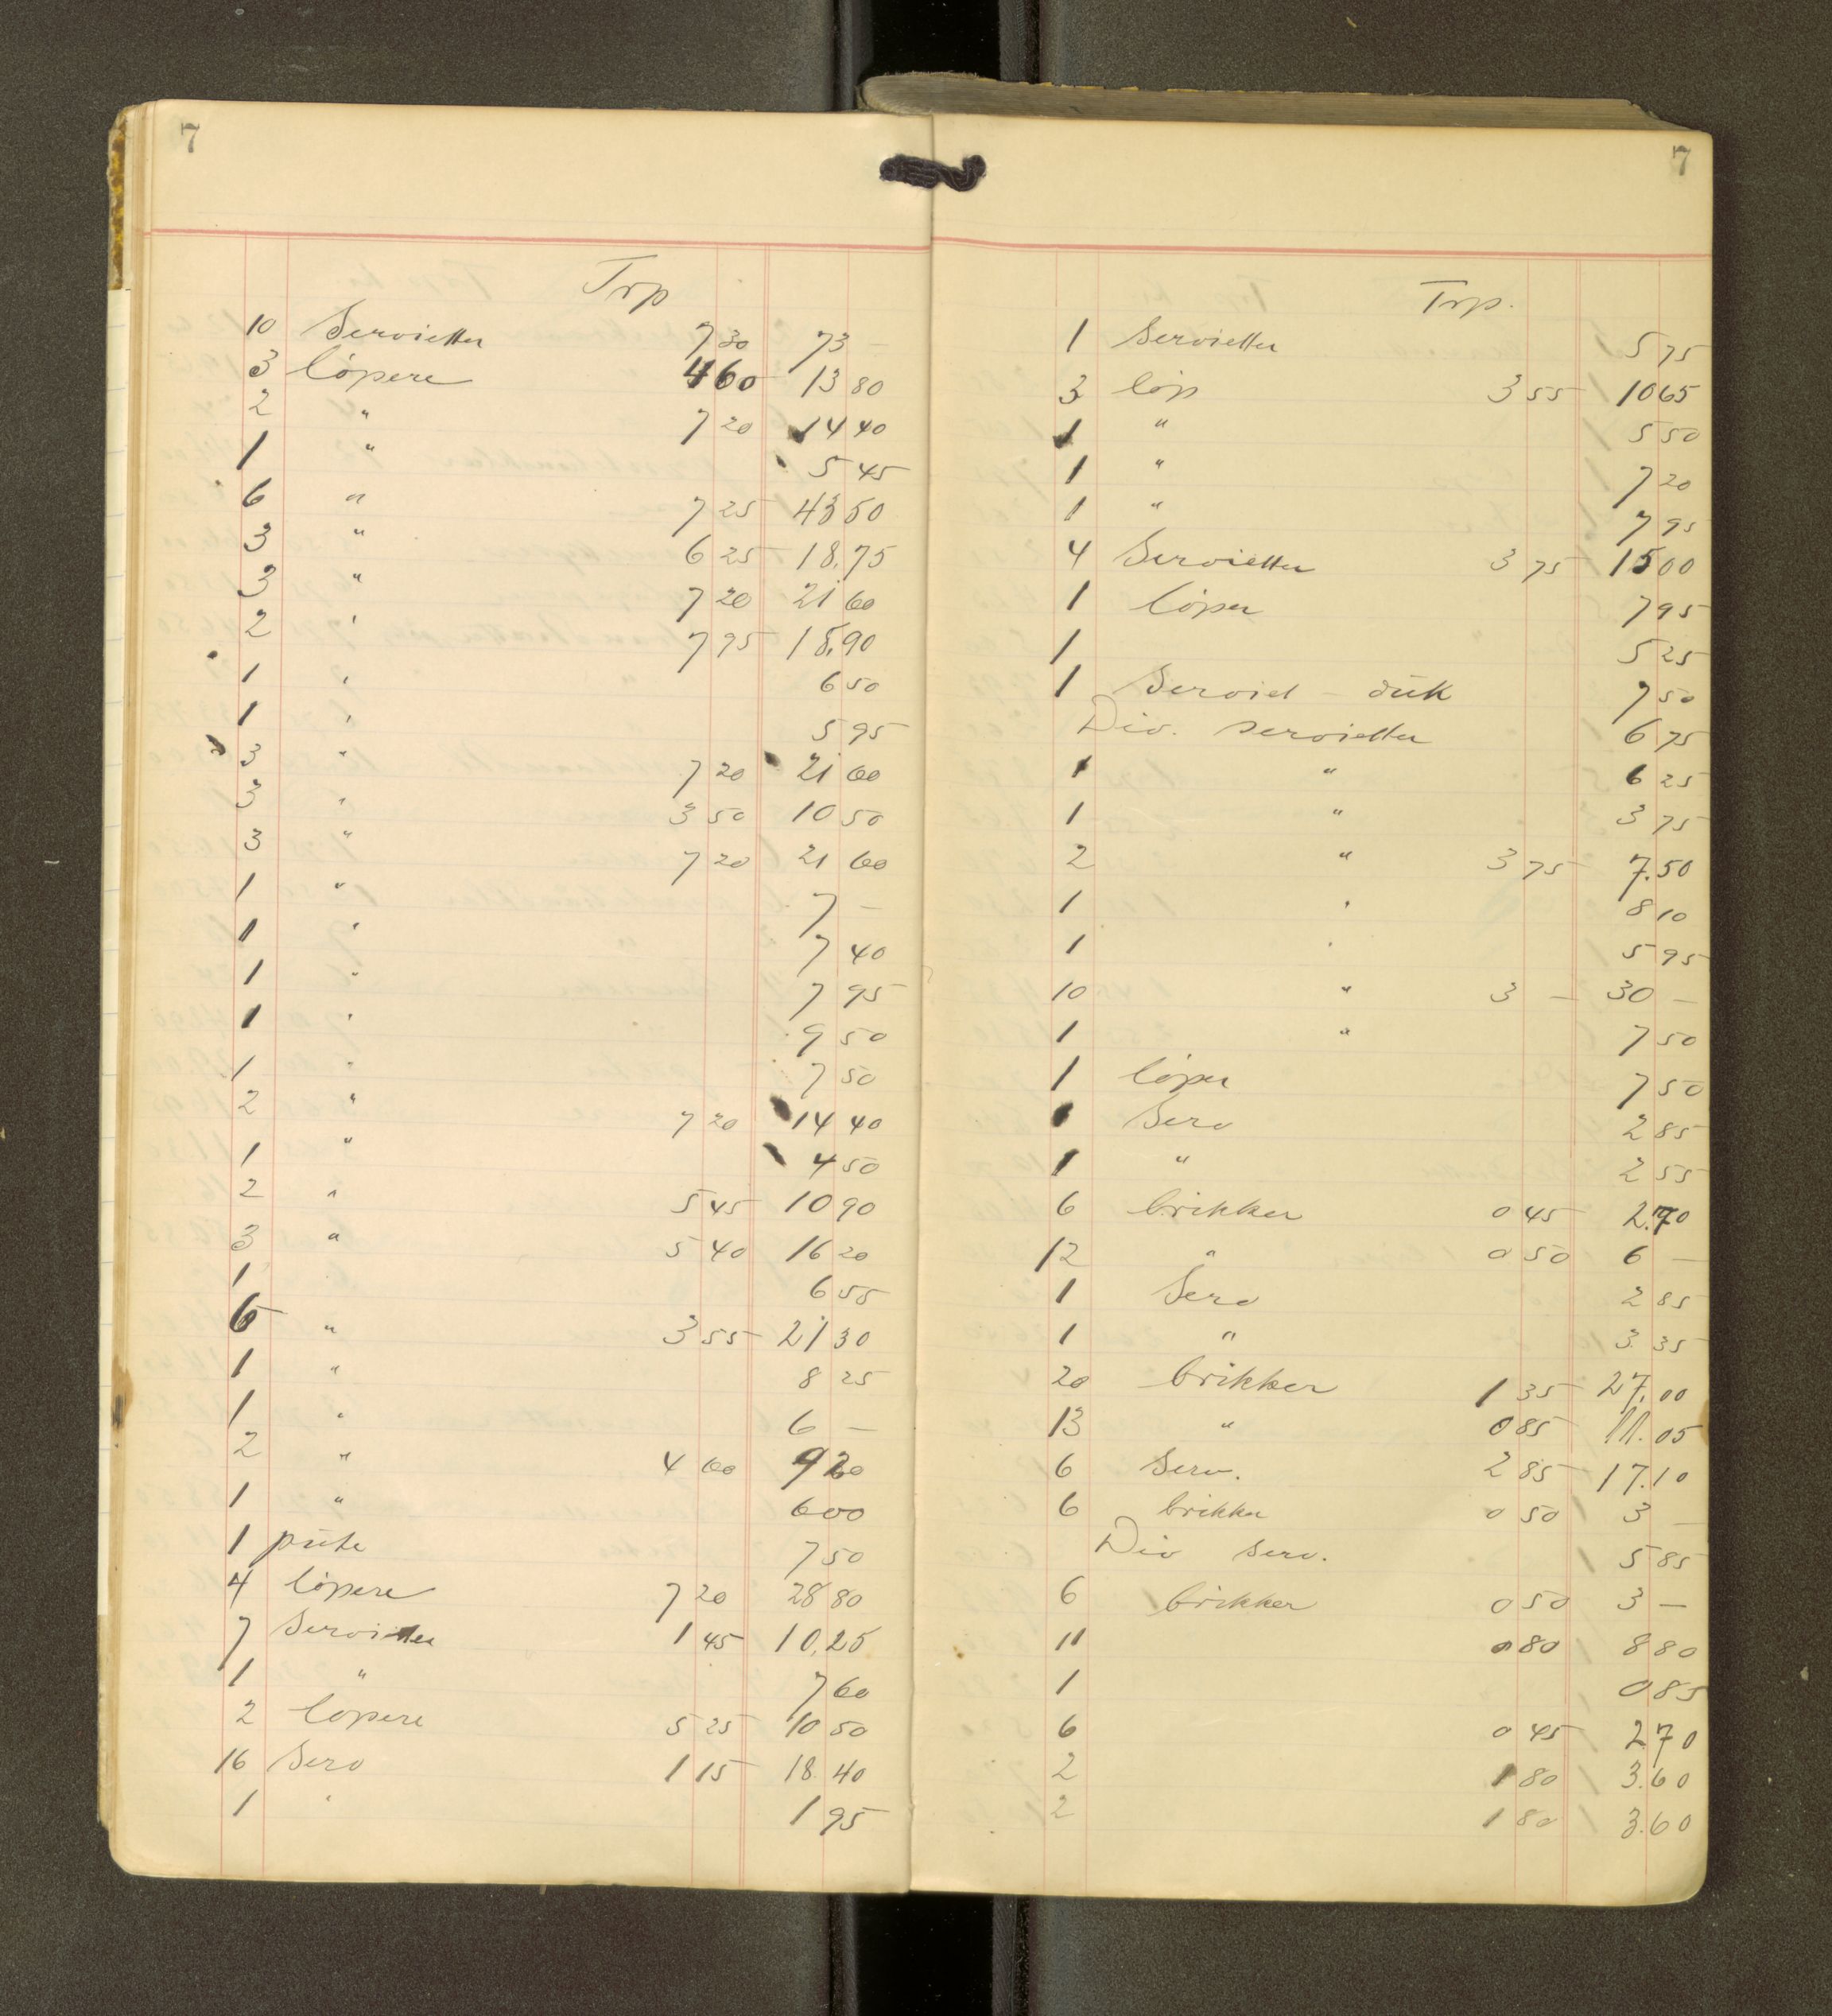 7
Trp
10 Servietter 7 30 73 —
3 löpere 4 60 13 80
2 " 7 20 14 40
1 " 5 45
6 " 7 25 43 50
3 " 6 25 18.75
3 " 7 20 21 60
2 " 7 95 15.90
1 " 6 50
1 " 5 95
3 " 7 20 21 60
3 " 3 50 10 50
3 " 7 20 21 60
1 " 7 —
1 " 7 40
1 " 7 95
1 " 9 50
1 " 7 50
2 " 7 20 14 40
1 " 4 50
2 " 5 45 10 90
3 " 5 40 16 20
1 " 6 55
6 " 3 55 21 30
1 " 8 25
1 " 6 —
2 " 4 60 9 20
1 " 6 00
1 püte 7 50
4 löpere 7 20 28 80
7 Servietter 1 45 10.25
1 " 7 60
2 löpere 5 25 10 50
16 Serv 1 15 18.40
1 " 1 95
7
Trp.
1 Servietter 5 75
3 löp 3 55 10 65
1 " 5 50
1 " 7 20
1 " 7 95
4 Servietter 3 75 15 00
1 löper 7 95
1 5 25
1 Serviet – dük 7 50
Div. servietter 6 75
1 " 6 25
1 " 3 75
2 " 3 75 7.50
1 " 8 10
1 " 5 95
10 " 3 — 30 —
1 " 7 50
1 löper 7 50
1 Serv 2 85
1 " 2 55
6 brikker 0 45 2.70
12 " 0 50 6 —
1 Serv 2 85
1 " 3.35
20 brikker 1 35 27.00
13 " 0 85 11.05
6 Serv. 2 85 17.10
6 brikker 0 50 3 —
Div serv. 5 85
6 brikker 0 50 3 —
11 0 80 8 80
1 0 85
6 0 45 2.70
2 1 80 3.60
2 1 80 3.60